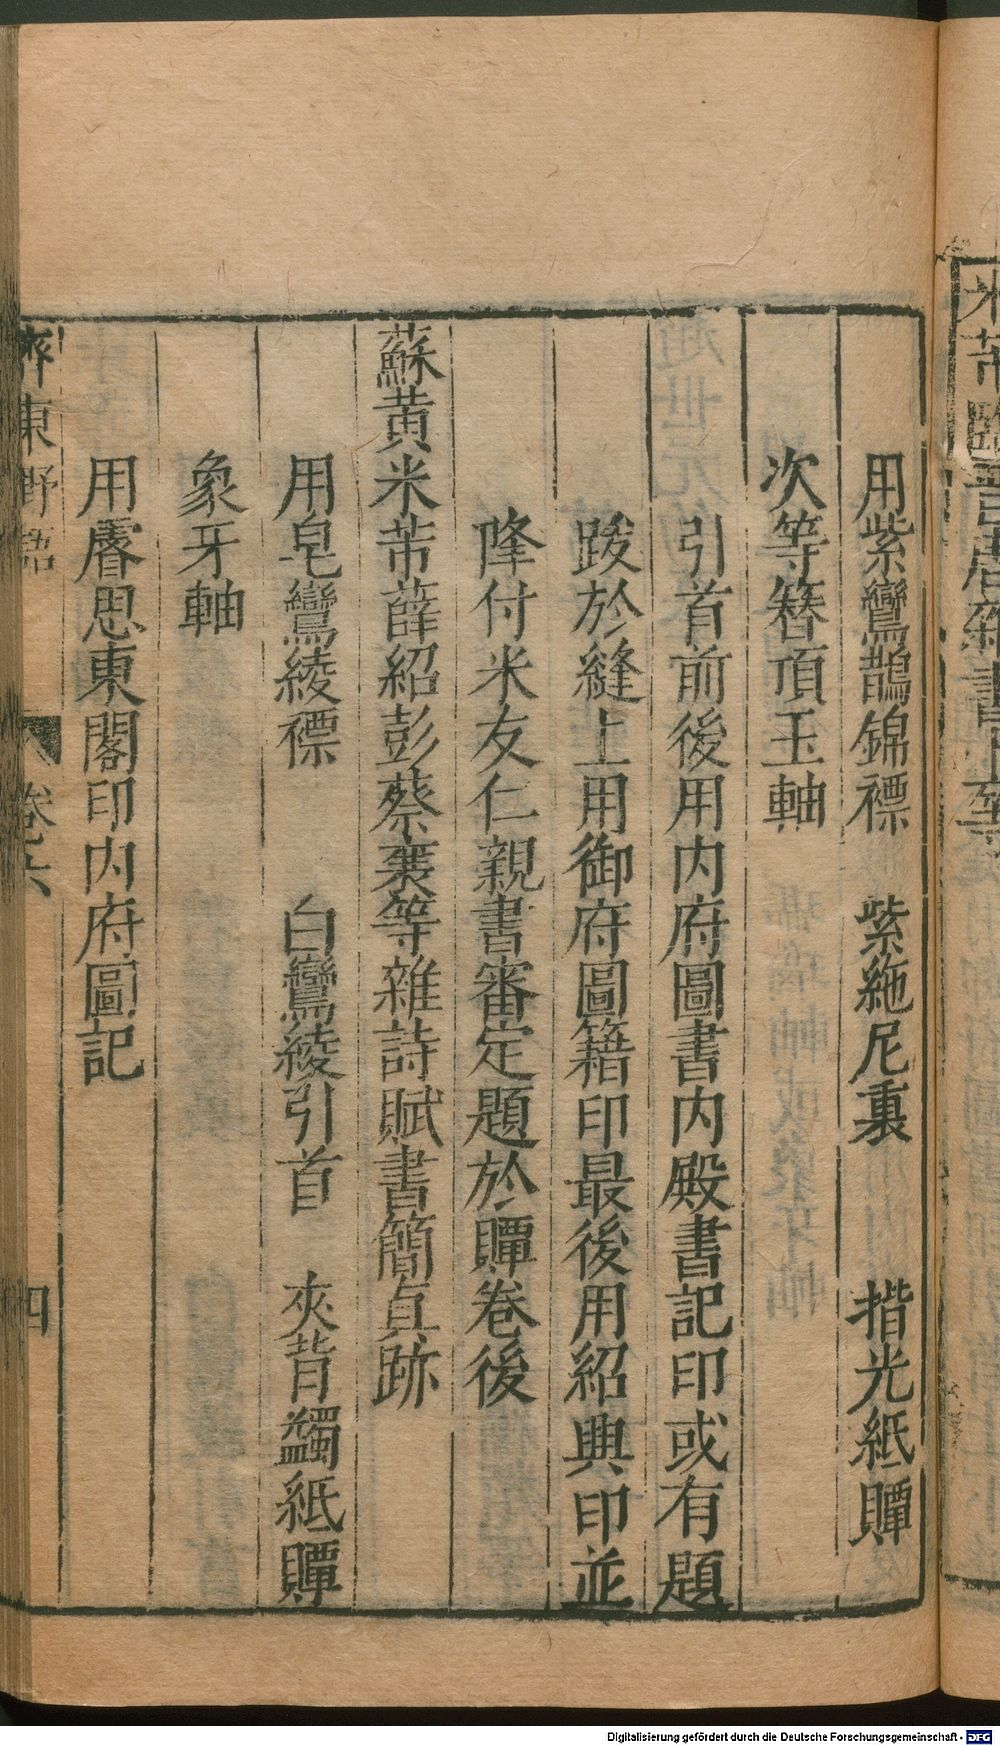 用紫鸞鵲錦褾　紫絁尼裏　揩光紙贉
次等簪頂玉軸
引首前後用内府圖書内殿書記印或有題
跋於縫上用御府圖籍印最後用紹興印並
降付米友仁親書審定題於贉卷後
蘇黄米芾薛紹彭蔡襄等雜詩賦書簡真跡
用皂鸞綾褾　白鸞綾引首　夾背蠲紙贉
象牙軸
用睿思東閣印内府圖記
齊東野語　卷六　四
Digitalisierung gefördert durch die Deutsche Forschungsgemeinschaft - DFG